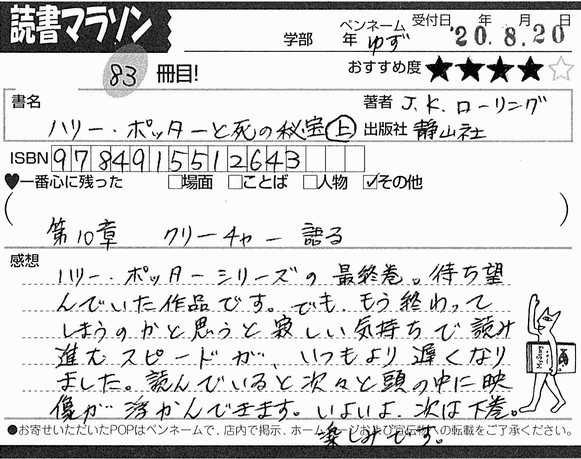 読書マラソン
学部 年 ペンネーム ゆず 受付日 年 月 日 '20.8.20
83 冊目! おすすめ度 ★★★★☆
書名 ハリー・ポッターと死の秘宝(上)
著者 J.K.ローリング
出版社 静山社
ISBN 9784915512643
♥一番心に残った □場面 □ことば □人物 ☑その他
(第10章 クリーチャー語る)
感想
ハリー・ポッターシリーズの最終巻。待ち望
んでいた作品です。でも、もう終わって
しまうのかと思うと寂しい気持ちで読み
進むスピードが、いつもより遅くなり
ました。読んでいると次々と頭の中に映
像が浮かんできます。いよいよ、次は下巻。
楽しみです。
●お寄せいただいたPOPはペンネームで、店内で掲示、ホームページおよび宣伝物への転載をご了承ください。